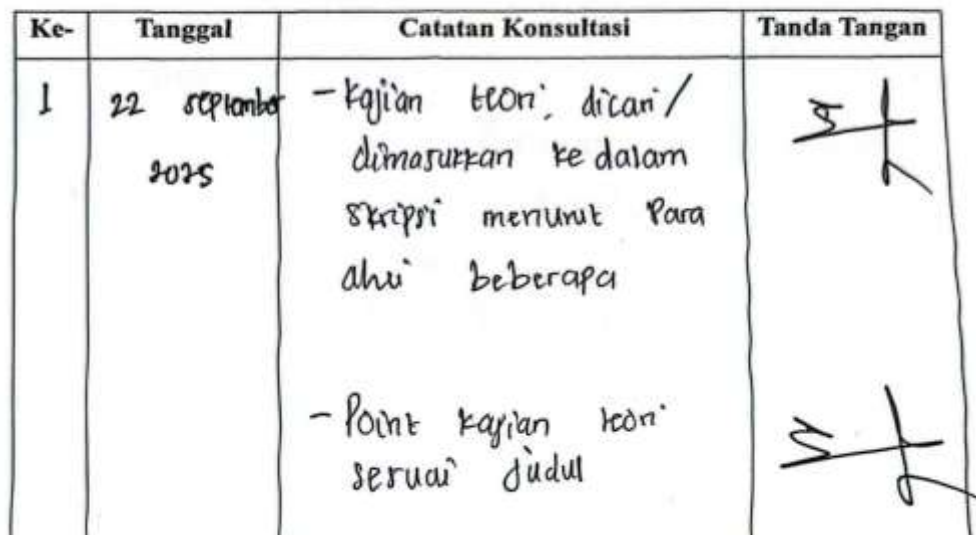 Ke- Tanggal Catatan Konsultasi Tanda Tangan
1 22 september - Kajian teori, dicari/
2025 dimasukkan ke dalam
skripsi menurut Para
ahli beberapa
- Point kajian teori
sesuai judul